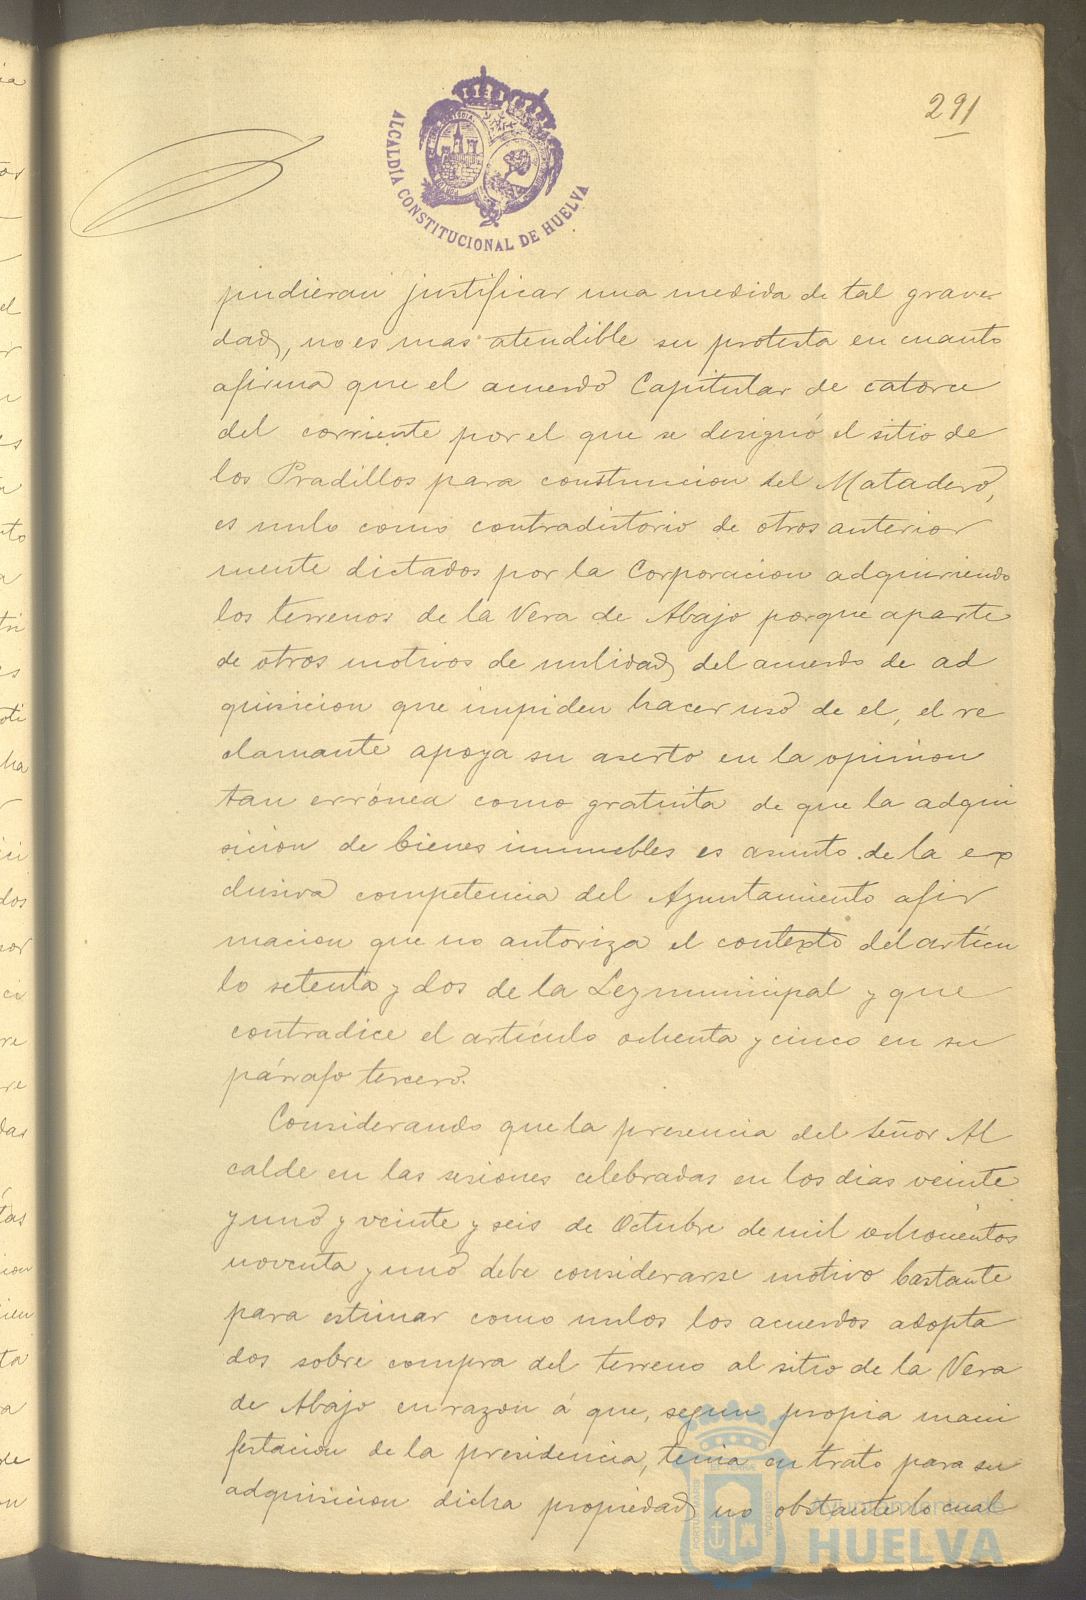 291
ALCALDÍA CONSTITUCIONAL DE HUELVA
pudieran justificar una medida de tal grave
dad, no es mas atendible su protesta en cuanto
afirma que el acuerdo Capitular de catorce
del corriente por el que se designó el sitio de
los Pradillos para construccion del Matadero,
es nulo como contradictorio de otros anterior
mente dictados por la Corporacion adquiriendo
los terrenos de la Vera de Abajo porque aparte
de otros motivos de nulidad del acuerdo de ad
quisicion que impiden hacer uso de el, el re
clamante apoya su aserto en la opinion
tan errónea como gratuita de que la adqui
sicion de bienes inmuebles es asunto de la ex
clusiva competencia del Ayuntamiento afir
macion que no autoriza el contexto del artícu
lo setenta y dos de la Ley municipal y que
contradice el artículo ochenta y cinco en su
párrafo tercero.
Considerando que la presencia del Señor Al
calde en las sesiones celebradas en los dias veinte
y uno y veinte y seis de Octubre de mil ochocientos
noventa y uno debe considerarse motivo bastante
para estimar como nulos los acuerdos adopta
dos sobre compra del terreno al sitio de la Vera
de Abajo en razon á que, segun propia mani
festacion de la presidencia, tenia en trato para su
adquisicion dicha propiedad no obstante lo cual
Ayuntamiento de
HUELVA